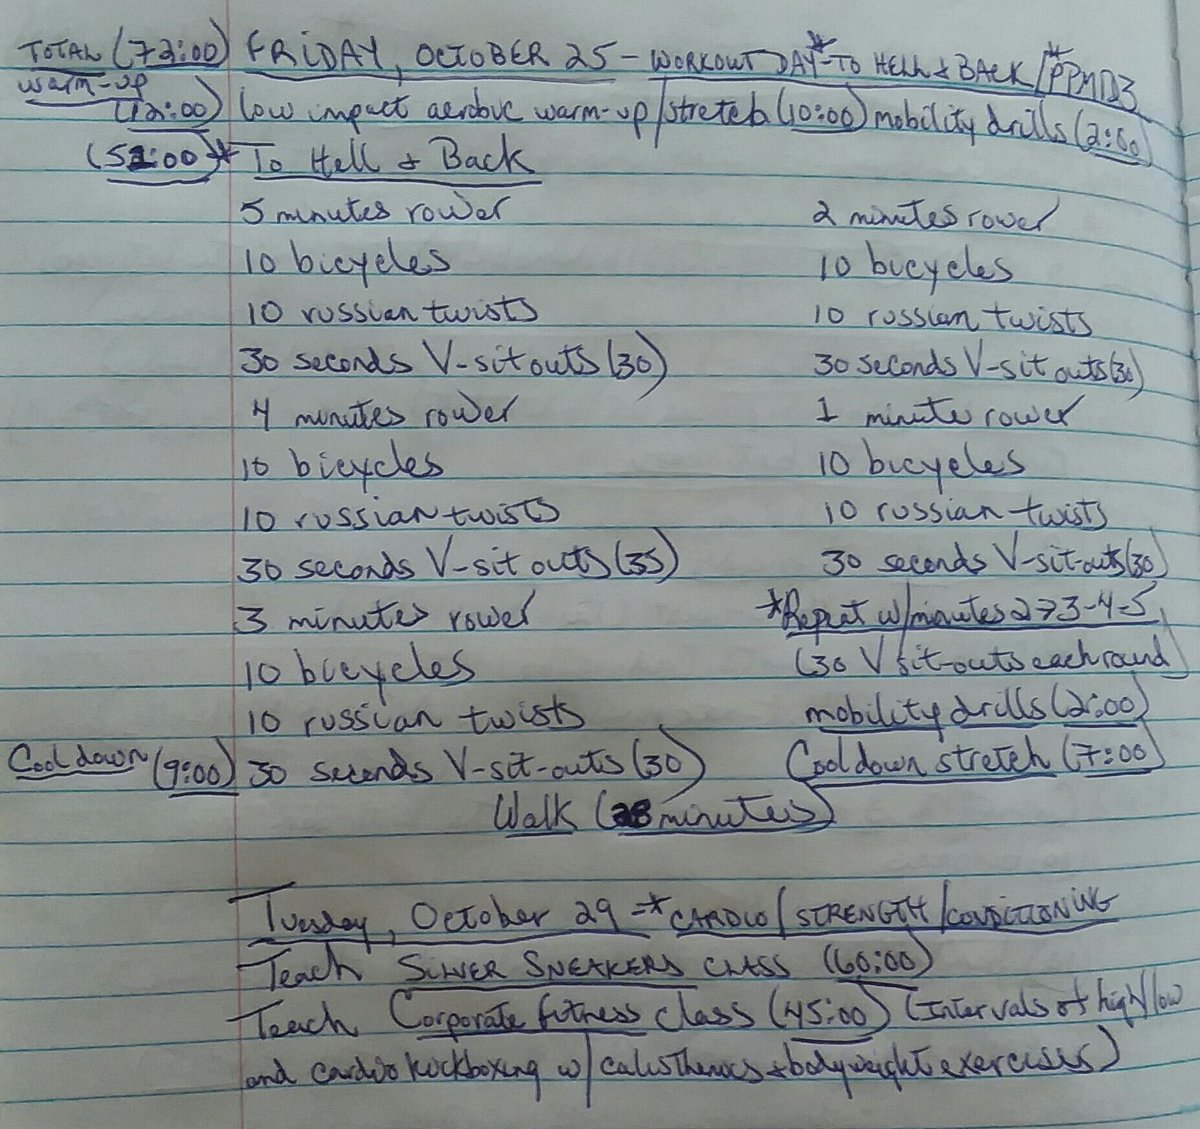 TOTAL (72:00) FRIDAY, OCTOBER 25 - WORKOUT DAY * TO HELL & BACK / *PPMD3
warm-up
(12:00) low impact aerobic warm-up / stretch (10:00) mobility drills (2:00)
(51:00) * To Hell & Back
5 minutes rower
10 bicycles
10 russian twists
30 seconds V-sit outs (30)
4 minutes rower
10 bicycles
10 russian twists
30 seconds V-sit outs (35)
3 minutes rower
10 bicycles
10 russian twists
Cool down (9:00) 30 seconds V-sit-outs (30)
2 minutes rower
10 bicycles
10 russian twists
30 seconds V-sit outs (30)
1 minute rower
10 bicycles
10 russian twists
30 seconds V-sit-outs (30)
*Repeat w/minutes 2→3-4-5
(30 V sit-outs each round)
mobility drills (2:00)
Cool down stretch (7:00)
Walk (minutes)
Tuesday, October 29 - * CARDIO / STRENGTH / CONDITIONING
Teach SILVER SNEAKERS CLASS (60:00)
Teach Corporate fitness class (45:00) (Intervals of high/low
and cardio kickboxing w/ calisthenics & bodyweight exercises)